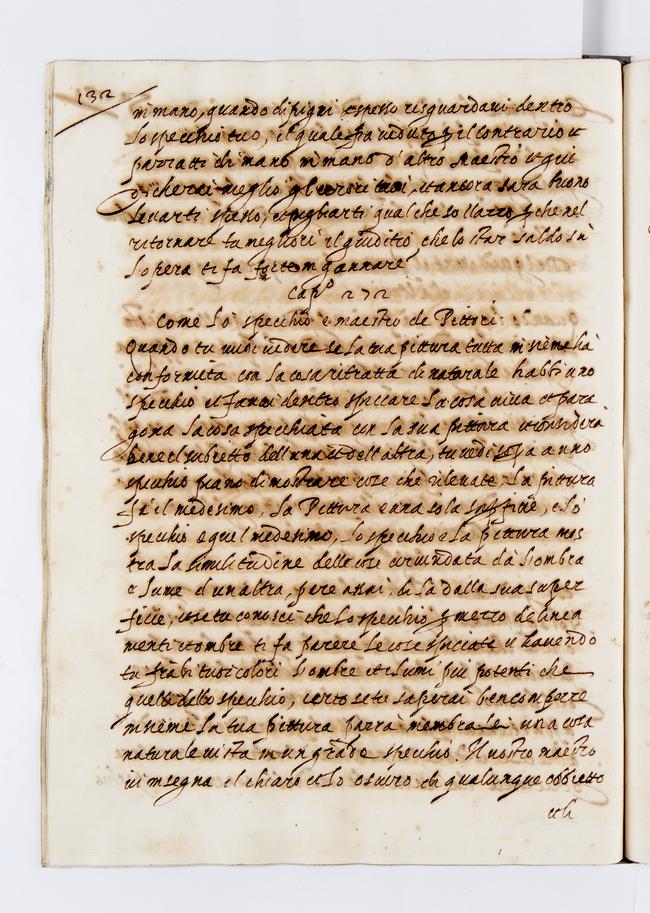 132
in mano, quando dipigni e spesso risguardavi dentro
lo specchio tuo, il quale fia veduto p il contrario et
parratti di mano in mano d'altro Maestro et qui
dicherai meglio gl'errori tuoi, et ancora sarà buono
levarti spesso, et pigliarti qualche sollazzo, p che nel
ritornare tu megliori il giuditio, che lo star saldo sù
l'opera ti fa forte ingannare
Cap.º 272
Come lo specchio è maestro de Pittori
Quando tu vuoi vedere se la tua pittura tutta insieme hà
conformità con la cosa ritratta di naturale habbi uno
specchio et favvi dentro specchiare la cosa viva et para
gona la cosa specchiata con la tua pittura et considera
bene el subietto dell'una et dell'altra, tu vedi uno
specchio piano dimostrare cose che rilevate la pittura
fà il medesimo, la Pittura è una sola superficie, e lo
specchio è quel medesimo, lo specchio e la pittura mos
tra la similitudine delle cose circundata dà l'ombra
e lume d'un altra, pare assai, di là dalla sua super
ficie, et se tu conosci che lo specchio p mezzo de linea
menti et ombre ti fa parere le cose spiccate et havendo
tu frà li tuoi colori l'ombre et i lumi più potenti che
quelli dello specchio, certo se te saperai ben comporre
insieme la tua pittura parrà membra lei una cosa
naturale vista in un grãde specchio. Il vostro maestro
vi insegna il chiaro et lo oscuro di qualunque obbietto